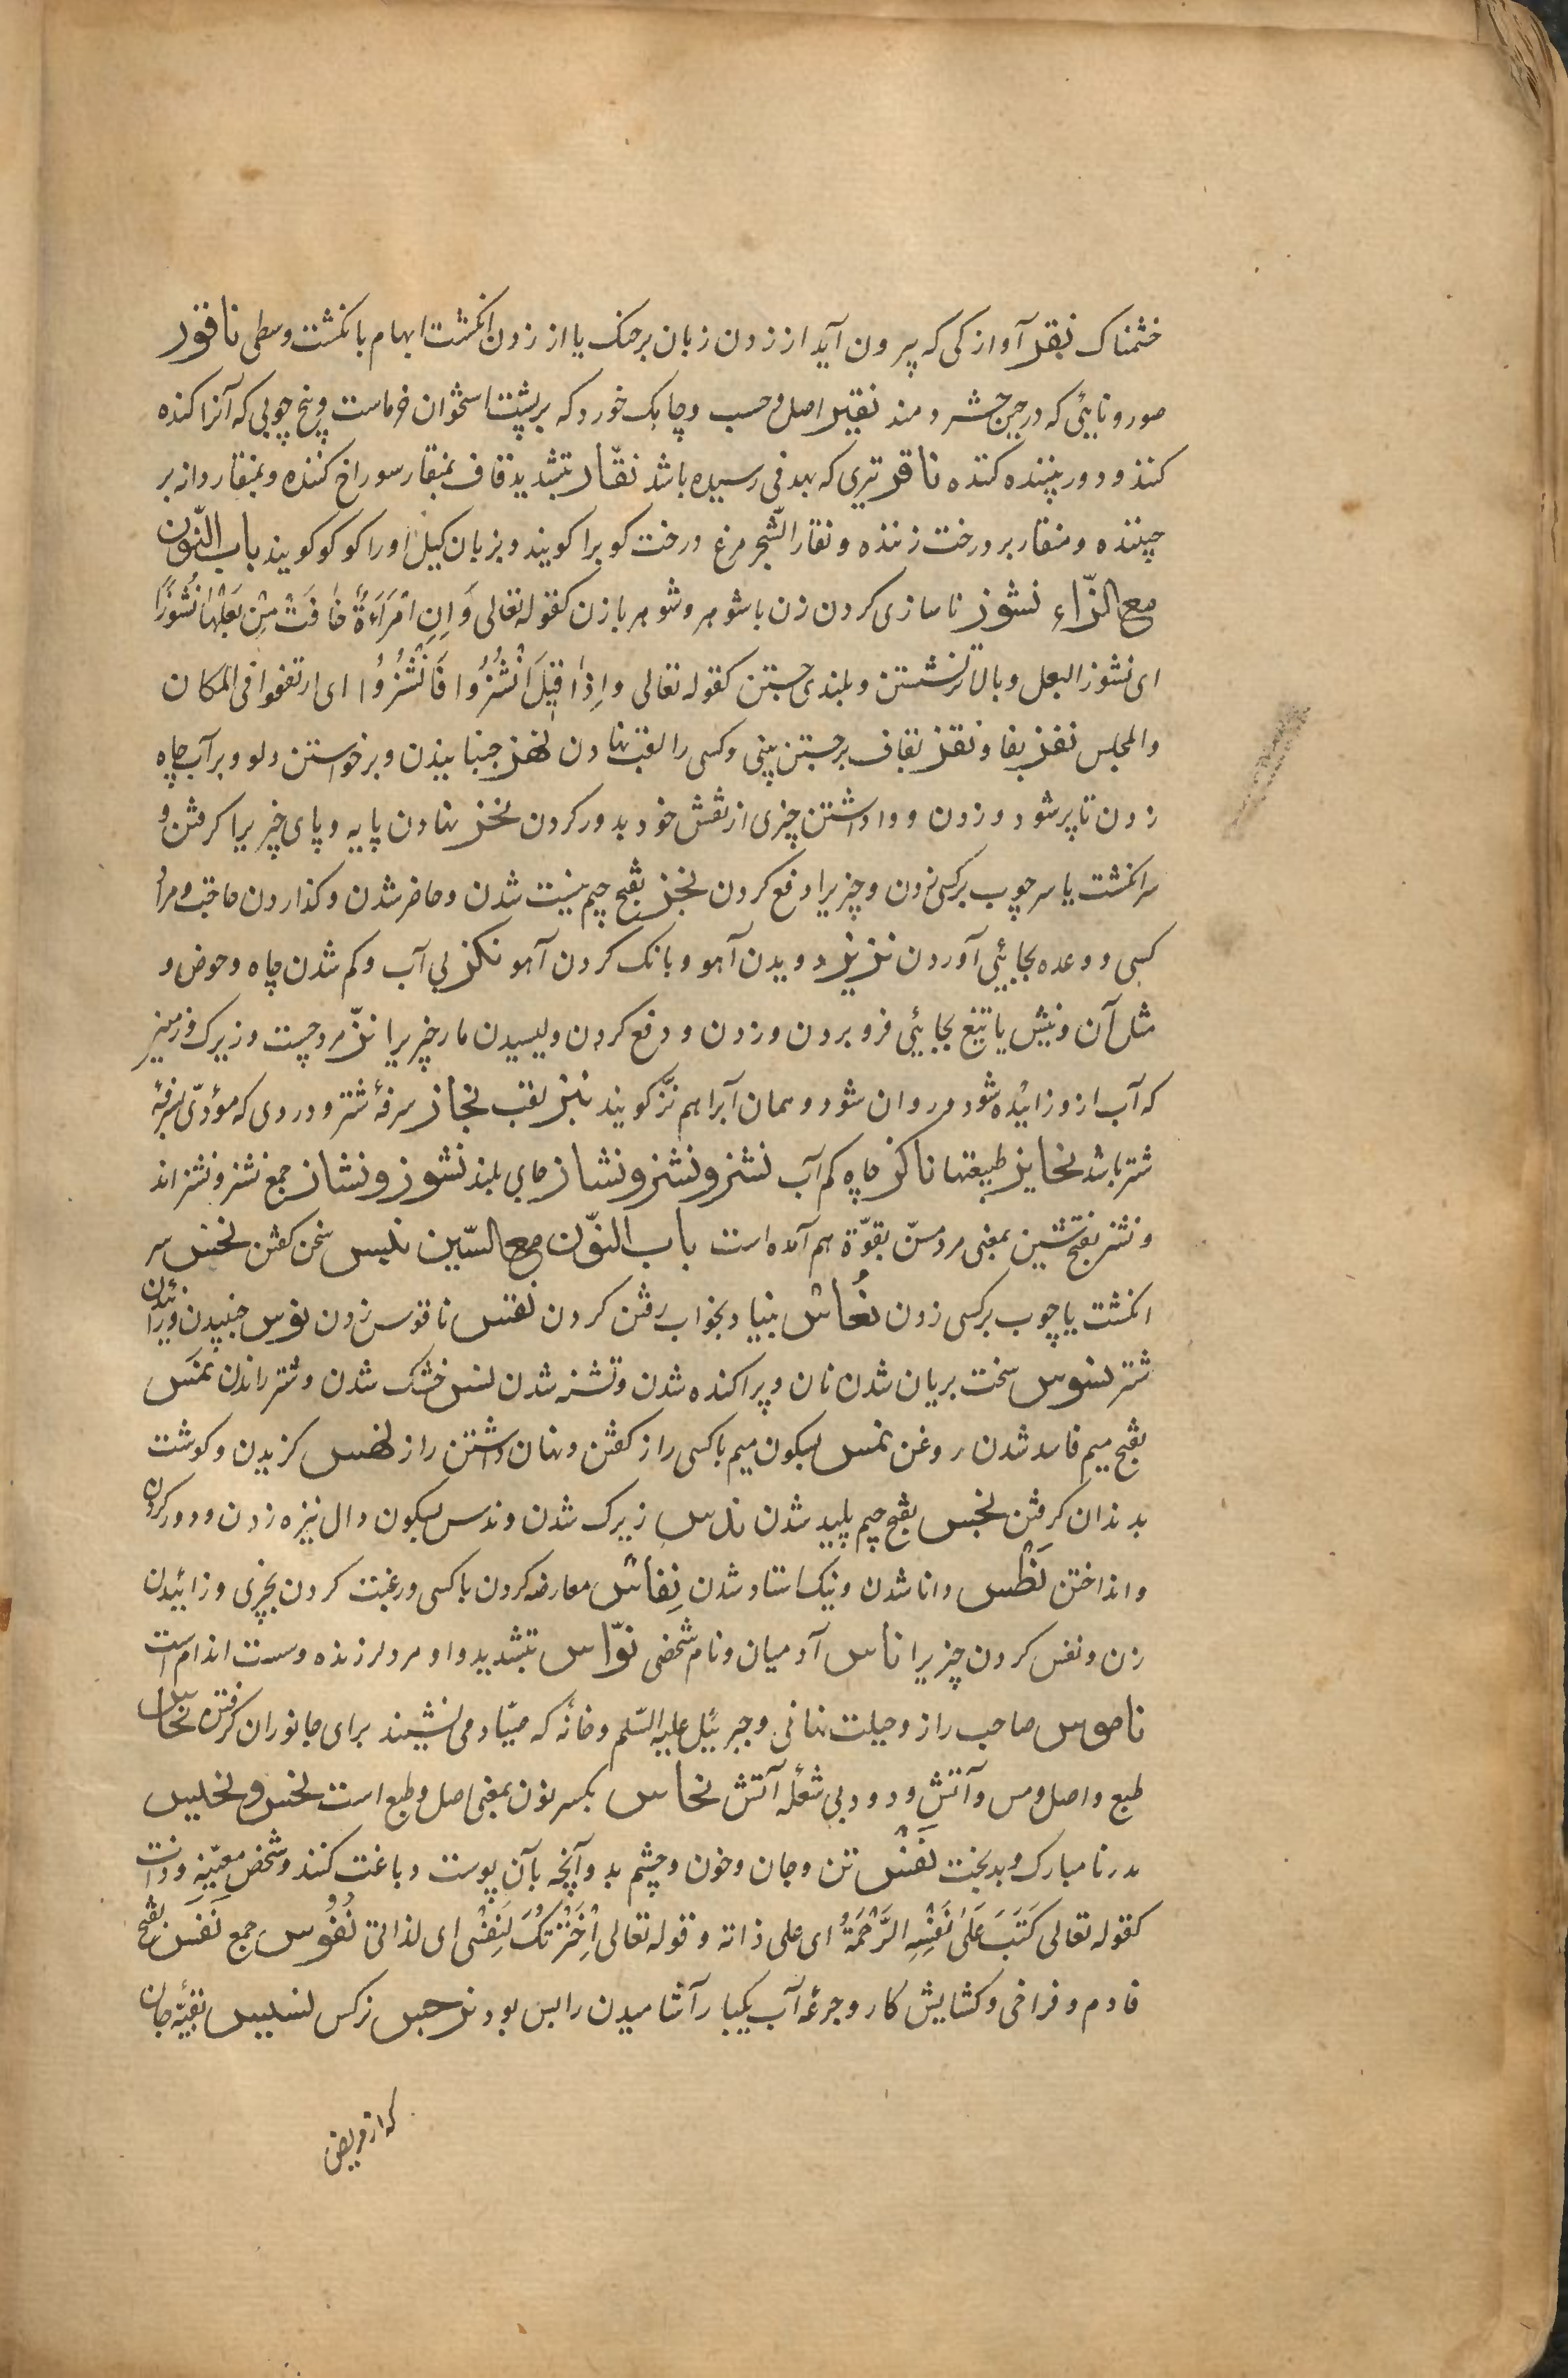 خشمناک نقر آوازکی که بیرون آید از زدن زبان بر حنک یا از زدن انکشت ابهام بانکشت وسطی ناقور
صور و نایئی که در حین حشر دمند نقیر اصل و حسب و چابک خورد که بر پشت استخوان خرماست و بیخ چوبی که آنرا کنده
کنند و دور بیننده کنده ناقر تیری که بهدفی رسیده باشد نقّار بتشدید قاف بمنقار سوراخ کننده و بمنقار دانه بر
چیننده و منقار بر درخت زننده و نقار الشّجر مرغ درخت کوبرا کویند و بزبان کیل اورا کوکو کویند باب النّون
مع الزّاء نشوز ناسازی کردن زن با شوهر و شوهر با زن کقوله تعالی وَاِنِ امْرَاَةٌ خافَتْ مِنْ بَعْلِها نُشُوزًا
ای نشوز البعل و بالاتر نشستن و بلندی جستن کقوله تعالی واِذا قیلَ انْشُزُوا فَانْشُزُوا ای ارتفعوا فی المکان
والمجلس نفز بفا و نقز بقاف برجستن بینی و کسی را لقب نهادن لهز جنبانیدن و برخواستن دلو و بر آب چاه
زدن تا پر شود و زدن و واداشتن چیزی از نفس خود بدور کردن نخز نهادن پایه و پای چیزیرا کرفتن و
سر انکشت یا سر چوب بر کسی زدن و چیزیرا دفع کردن نجز بفتح جیم نیست شدن و حاضر شدن و کذاردن حاجت و مراد
کسی و وعده بجایئی آوردن نزیز دویدن آهو و بانک کردن آهو نکز بی آب و کم شدن چاه و حوض و
مثل آن و نیش یا تیغ بجایئی فرو بردن و زدن و دفع کردن و لیسیدن مار چیزیرا نزّ مرد چست و زیرک و زمین
که آب ازو زائیده شود و روان شود و همان آبرا هم نزّ کویند نبز لقب نحاز سرفهٔ شتر و دردی که مؤدّی بسرفهٔ
شتر باشد نحایز طبیعتها ناکز چاه کم آب نشز و نشز و نشاز جای بلند نشوز و نشاز جمع نشز و نشز اند
و نشز بفتح شین بمعنی مرد مسنّ بقوّة هم آمده است باب النّون مع السّین نلیس سخن کفتن نخس سر
انکشت یا چوب بر کسی زدن نُعاس بنیاد بخواب رفتن کردن نقس ناقوس زدن نوس جنبیدن و راندن
شتر نسوس سخت بریان شدن نان و پراکنده شدن و تشنه شدن نس خشک شدن و شتر راندن نمس
بفتح میم فاسد شدن روغن نمس بسکون میم با کسی راز کفتن و نهان داشتن راز نهس کزیدن و کوشت
بدندان کرفتن نجس بفتح جیم پلید شدن ندس زیرک شدن و ندس بسکون دال نیزه زدن و دور کردن
و انداختن نَطْس دانا شدن و نیک استاد شدن نِفاس معارضه کردن با کسی و رغبت کردن بچیزی و زائیدن
زن و نفس کردن چیزیرا ناس آدمیان و نام شخصی نوّاس بتشدید واو مرد لرزنده و سست اندام است
ناموس صاحب راز و حیلت نهانی و جبرئیل علیه السّلم و خانهٔ که صیّاد می نشیند برای جانوران کرفتن نحاس
طبع و اصل و مس و آتش و دود بی شعلهٔ آتش نحاس بکسر نون بمعنی اصل و طبع است نحس و نحیس
بد و نامبارک و بدبخت نَفْس تن و جان و خون و چشم بد و آنچه بآن پوست دباغت کنند و شخص معیّنه و ذات
کقوله تعالی کَتَبَ عَلَی نَفْسِهِ الرَّحْمَةُ ای علی ذاته و قوله تعالی اِخْتَرْتُکَ لِنَفْسی ای لذاتی نُفُوس جمع نَفَس بفتح
فا دم و فراخی و کشایش کار و جرعهٔ آب یکبار آشامیدن را بس بود نرجس نرکس نسیس بقیّهٔ جان
که از مریض